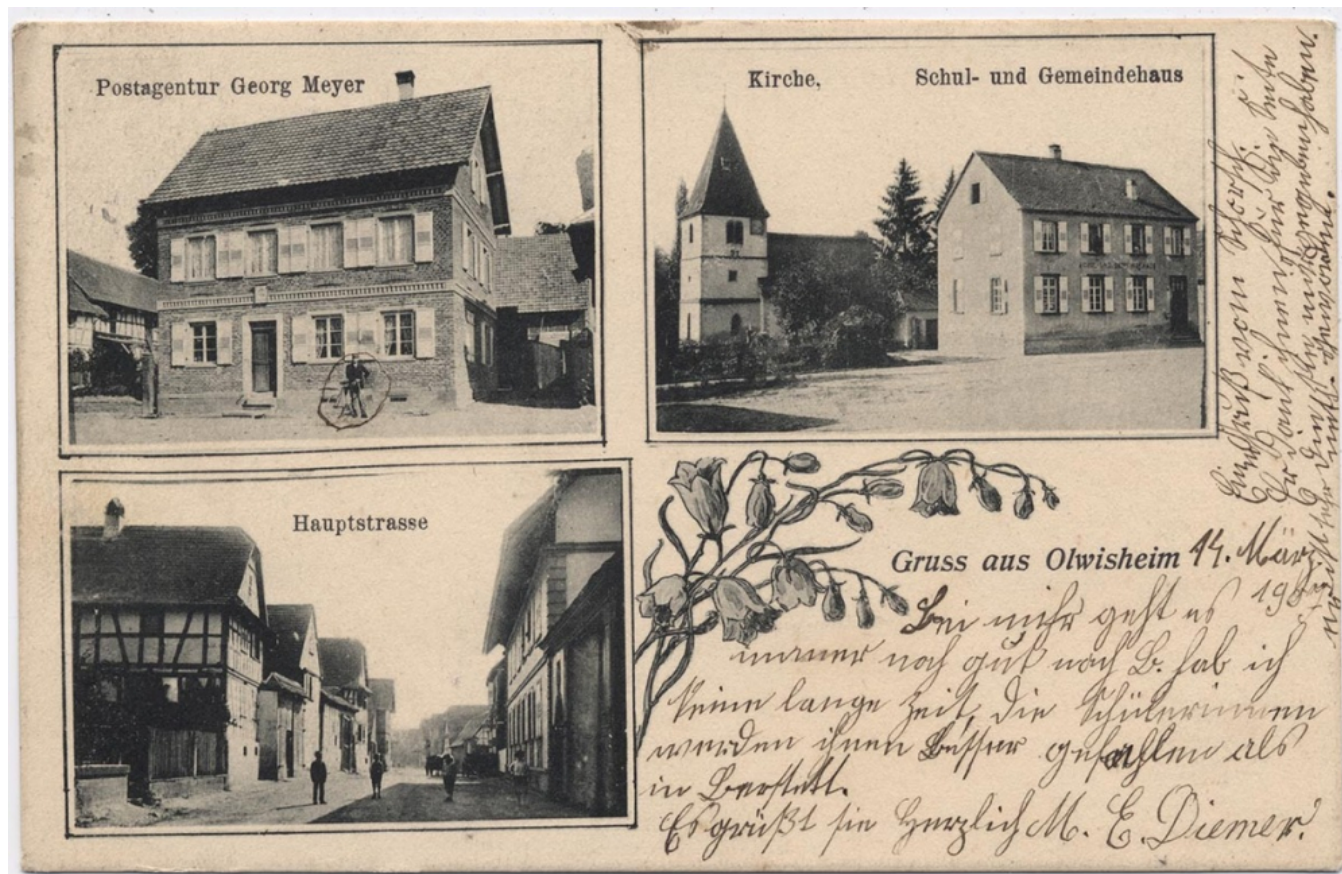 Postagentur Georg Meyer
Kirche,
Schul- und Gemeindehaus
Hauptstrasse
Gruss aus Olwisheim
14. März
190
Bei mihr geht es
immer noch gut nach B. hab ich
keine lange Zeit, die Schülerinnen
werden ihnen Besser gefahlen als
in Berstett.
Es grüßt sie Herzlich M. E. Diemer.
Ein Gruß vom Schorsch.
Er Dankt ihnen für